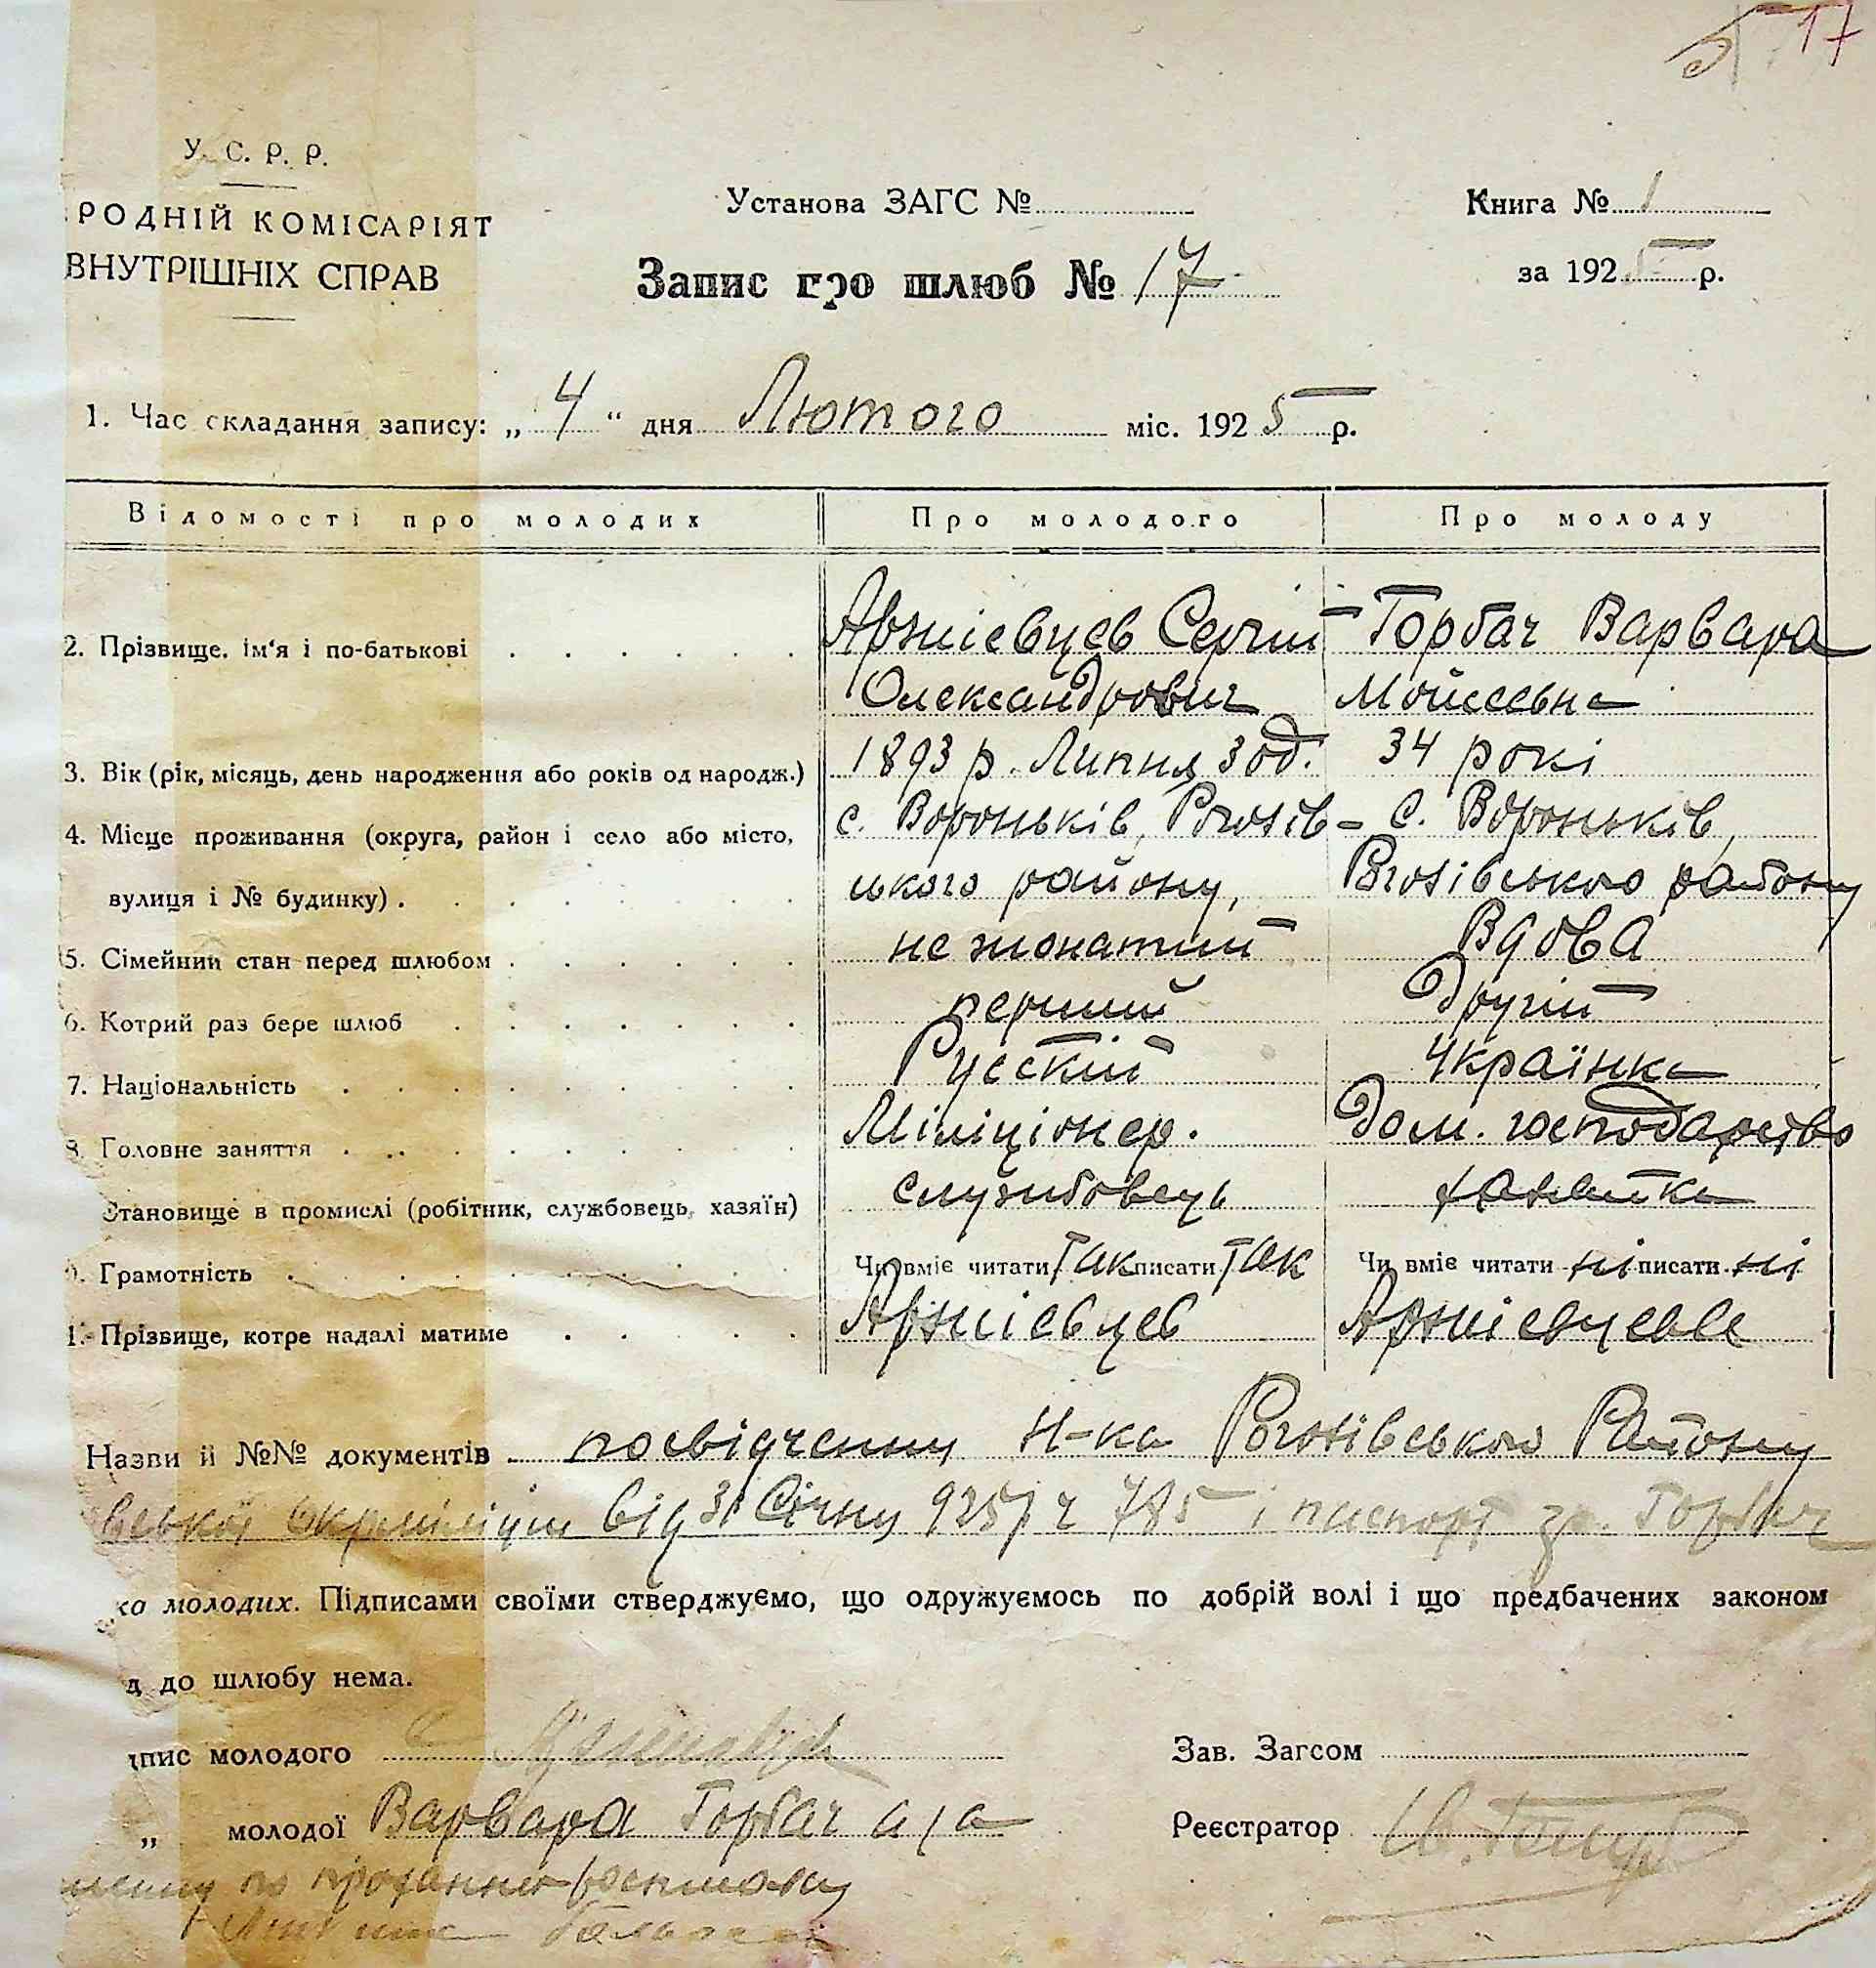 17
У. С. Р. Р.
РОДНІЙ КОМІСАРІЯТ
ВНУТРІШНІХ СПРАВ
Установа ЗАГС №
Книга № 1
Запис про шлюб № 17
за 1925 р.
1. Час складання запису: „4“ дня Лютого міс. 1925 р.
Відомості про молодих Про молодого Про молоду
2. Прізвище, ім‘я і по-батькові Арзнієвцев Сергій Горбач Варвара
Олександрович Мойсеевна
3. Вік (рік, місяць, день народження або років од народж.) 1893 р. Липня 3 од. 34 рокі
4. Місце проживання (округа, район і село або місто, с. Вороньків, Рогозів- с. Вороньків,
вулиця і № будинку) ського району, Рогозівського району
5. Сімейний стан перед шлюбом не жонатий Вдова
6. Котрий раз бере шлюб перший Другій
7. Національність Русскій Українка
8. Головне заняття Міліціонер. Дом. господарство
Становище в промислі (робітник, службовець, хазяїн) службовець хазяйка
Грамотність Чи вміє читати Так писати Так Чи вміє читати ні писати ні
1. Прізвище, котре надалі матиме Арзнієвцев Арзнієвцева
Назви й №№ документів посвідченну Н-ка Рогозівського Району
від 31 Січну 925 р ч 785 і паспорт гр. Горбач
ка молодих. Підписами своїми стверджуємо, що одружуємось по добрій волі і що предбачених законом
д до шлюбу нема.
пис молодого
Зав. Загсом
„ молодої Варвара Горбач а за
Реєстратор
по проханню